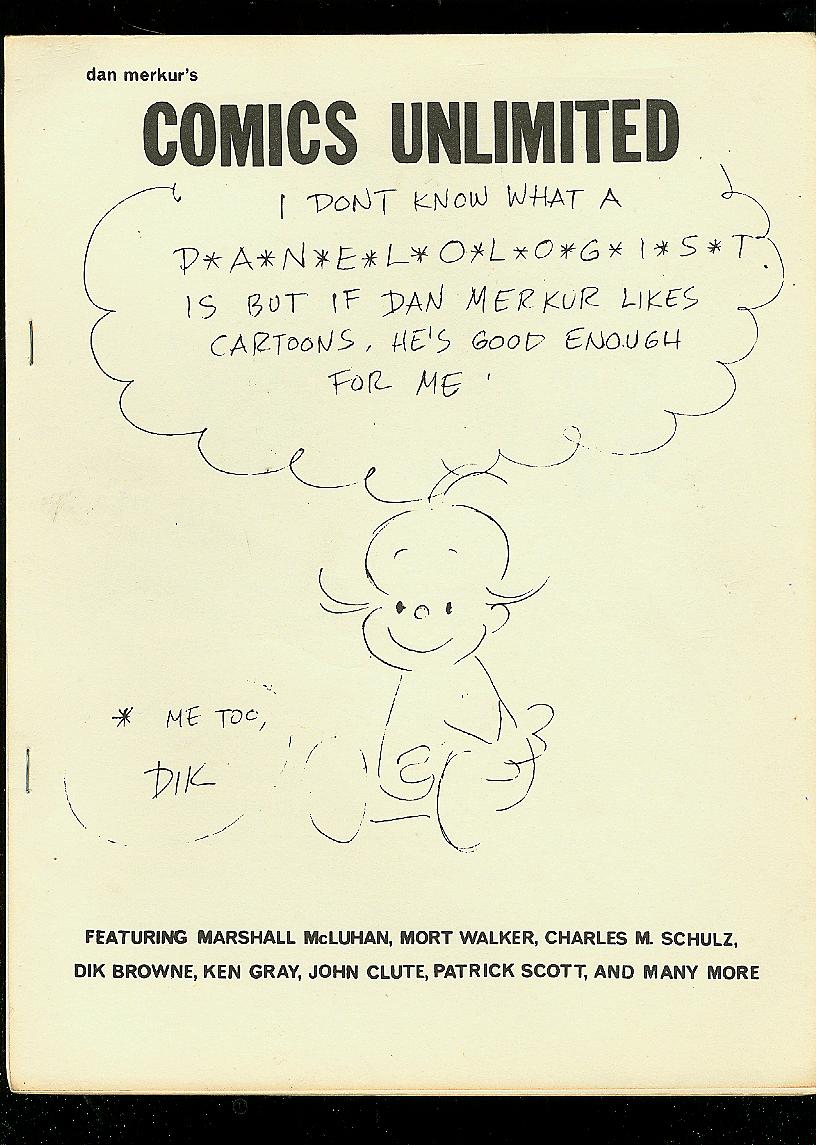 dan merkur's
COMICS UNLIMITED
I DONT KNOW WHAT A
P*A*N*E*L*O*L*O*G*I*S*T.
IS BUT IF DAN MERKUR LIKES
CARTOONS, HE'S GOOD ENOUGH
FOR ME '
* ME TOO,
DIK
FEATURING MARSHALL McLUHAN, MORT WALKER, CHARLES M. SCHULZ,
DIK BROWNE, KEN GRAY, JOHN CLUTE, PATRICK SCOTT, AND MANY MORE